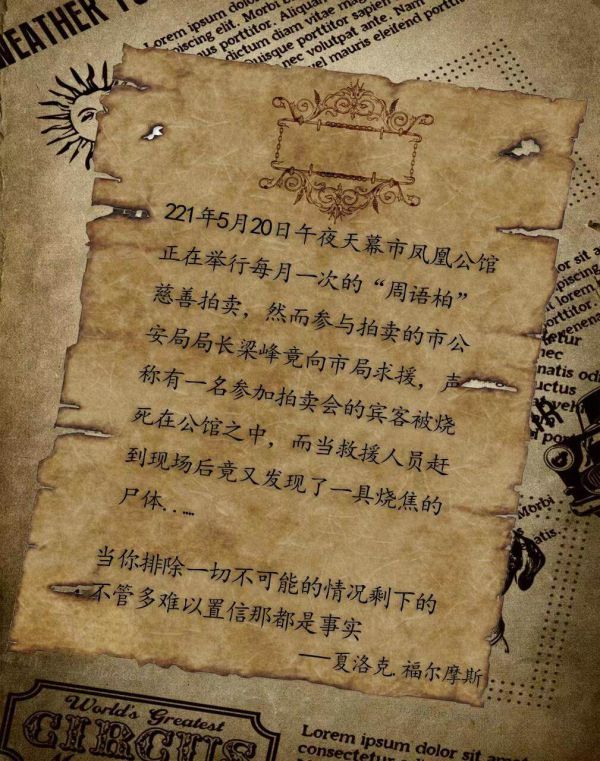 WEATHER
Lorem ipsum dolor
piscing elit. Morbi
porttitor. Aliquam
dictum diam vitae
Quisque porttitor sapien
nec volutpat ante. Nam
mauris eleifend porttitor
221年5月20日午夜天幕市凤凰公馆
正在举行每月一次的“周语柏”
慈善拍卖，然而参与拍卖的市公
安局局长梁峰竟向市局求援，声
称有一名参加拍卖会的宾客被烧
死在公馆之中，而当救援人员赶
到现场后竟又发现了一具烧焦的
尸体……
当你排除一切不可能的情况剩下的
不管多难以置信那都是事实
——夏洛克.福尔摩斯
or sit a
piscing
lorem
porttitor.
nec
natis odi
uctus
Morbi
atis.
World's Greatest
CIRCUS
Lorem ipsum dolor sit a
consectetur